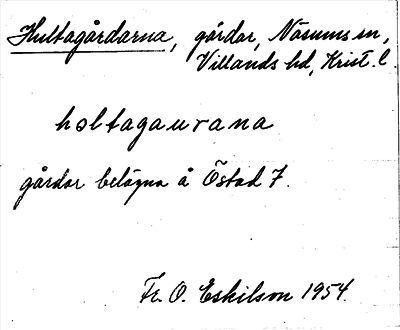 Hultagårdarna, gårdar, Näsums sn,
Villands hd, Krist. l.
holtagaurana
gårdar belägna å Östad 7.
Fr. O. Eskilson 1954.